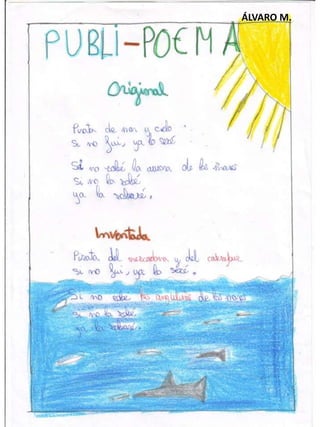 ÁLVARO M.
PUBLI-POEMA
Original
Pirata de mar y cielo
si no fui, ya lo seré.
Si no robé la aurora de los mares
si no la robé
ya la robaré.
Inventada
Pirata del y del
si no fui, ya lo seré.
Si no robé las de los mares
si no la robé
ya la robaré.